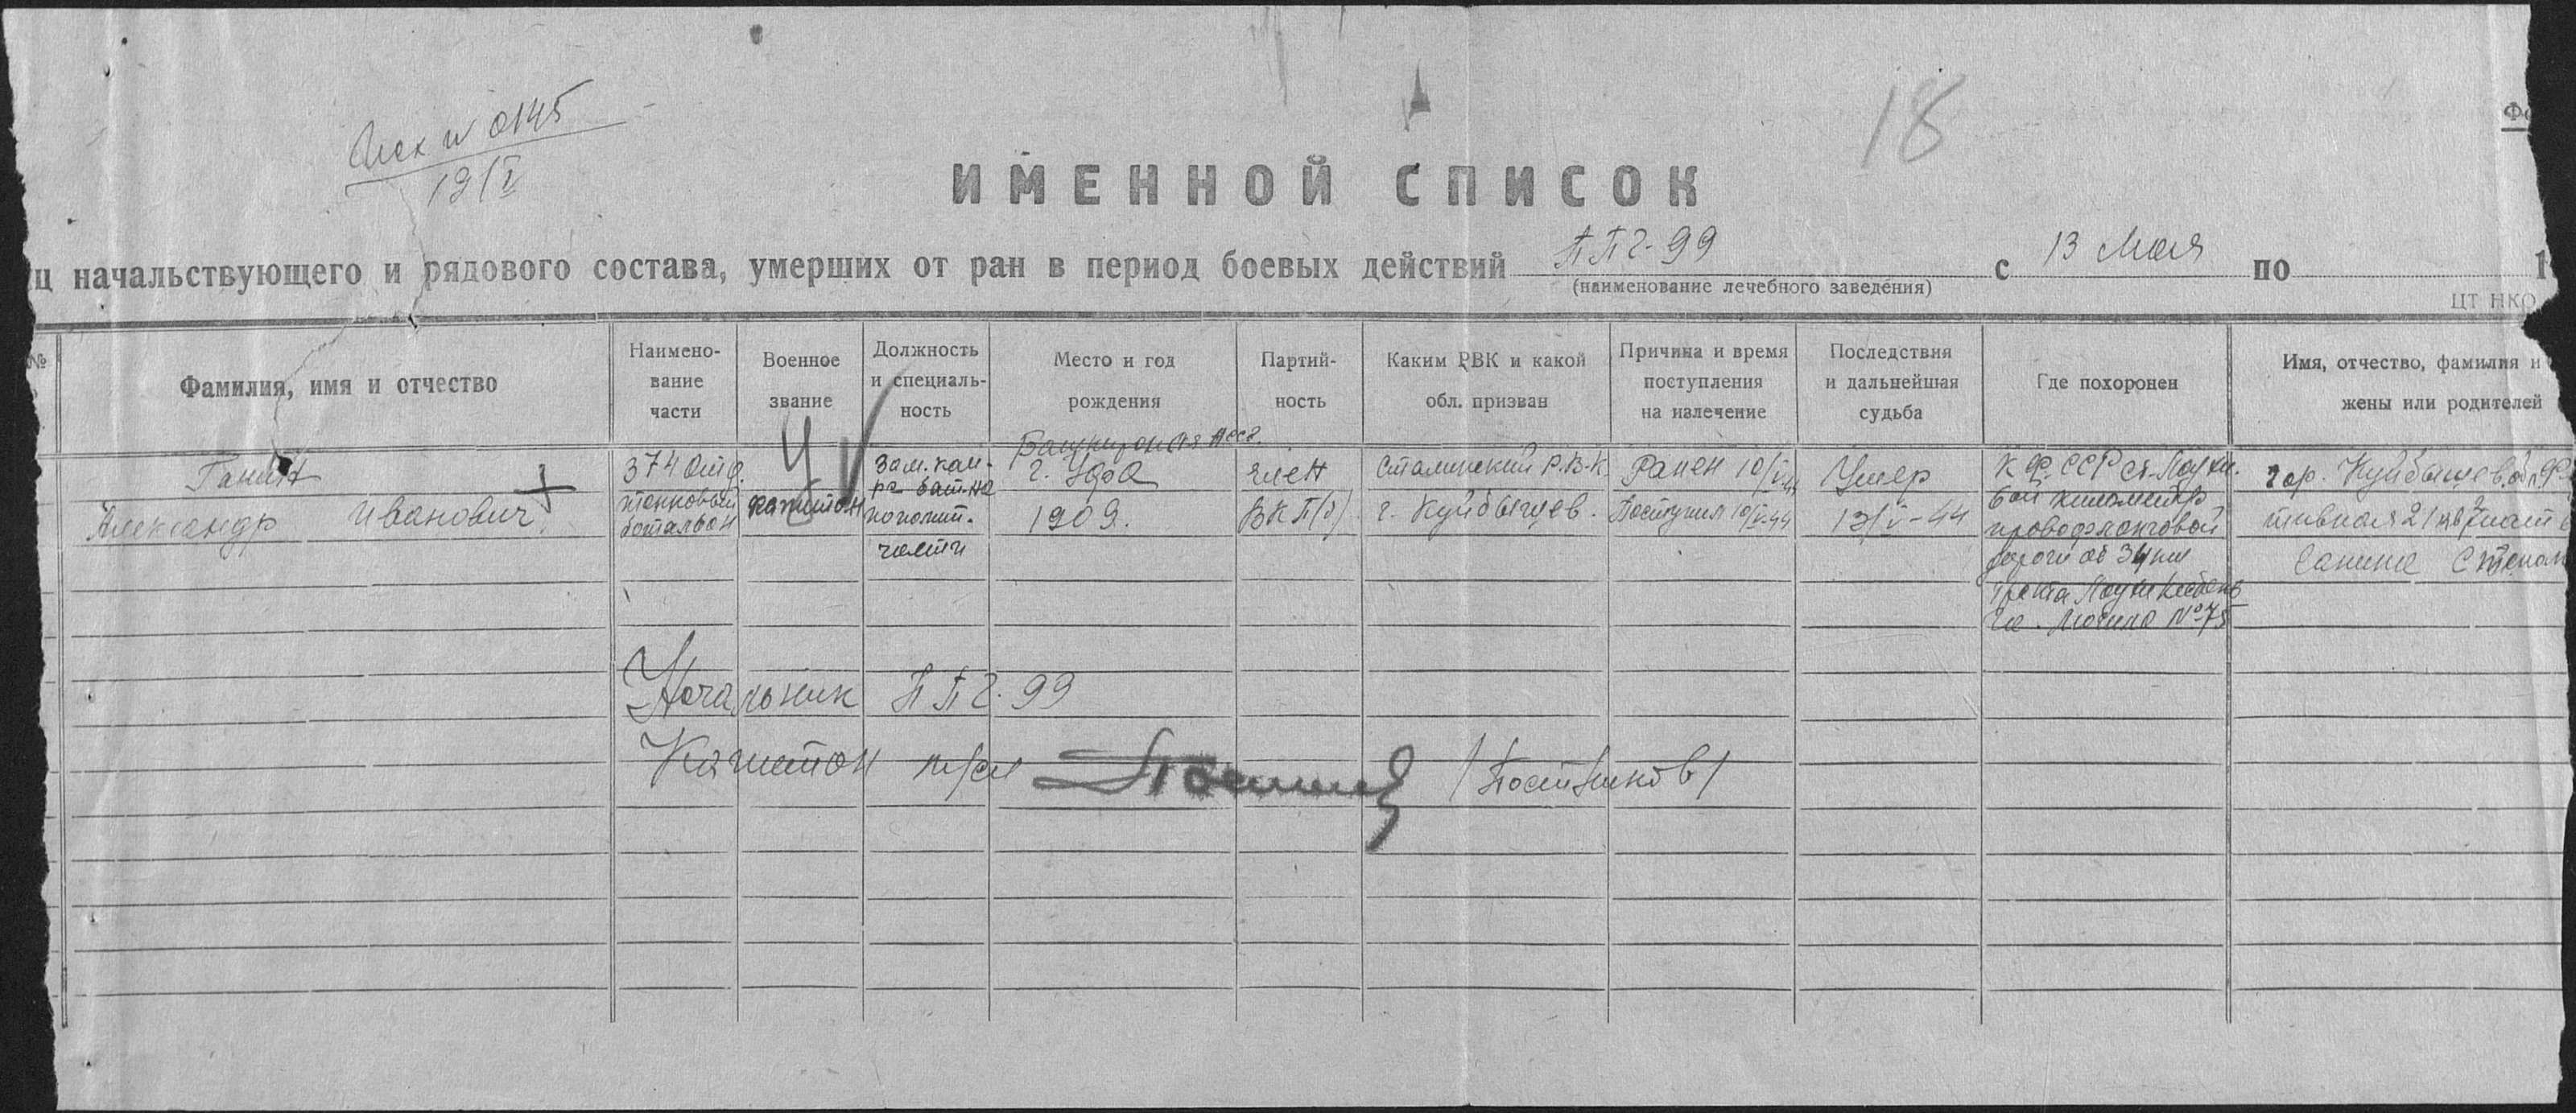 Исх № 0145
19/V
18
Фо
ИМЕННОЙ СПИСОК
ц начальствующего и рядового состава, умерших от ран в период боевых действий ППГ-99 с 13 Мая по 1
(наименование лечебного заведения)
ЦТ НКО
№
Фамилия, имя и отчество
Наимено-
вание
части
Военное
звание
Должность
и специаль-
ность
Место и год
рождения
Партий-
ность
Каким РВК и какой
обл. призван
Причина и время
поступления
на излечение
Последствия
и дальнейшая
судьба
Где похоронен
Имя, отчество, фамилия и
жены или родителей
Ганин
Александр Иванович
374 отд.
танковый
батальон
капитан
зам. ком-
ра бат-на
по полит.
части
Башкирская АССР.
г. Уфа
1909.
член
ВКП(б)
Сталинский Р.В.К.
г. Куйбышев.
Ранен 10/V-44
Поступил 10/V-44
Умер
13/V-44
К.Ф.ССР ст. Лоухи.
километр
дороги об 34 км
тракта Лоухи Кестень
га. Могила № 75
гор. Куйбышев
тивная 21 кв 7
Ганина Степан
Начальник ППГ-99
Капитан м/сл /Постников/